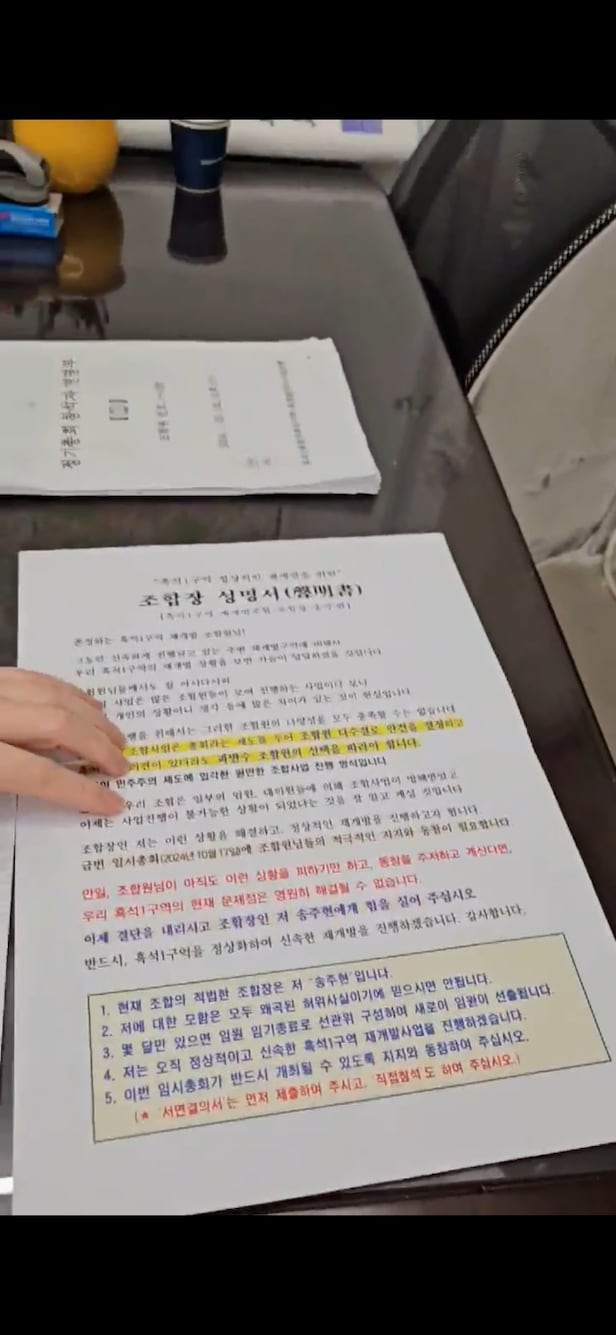 정기총회 참석자 연명부
"흑석1구역 정상적인 재개발을 위한"
조합장 성명서(聲明書)
(흑석1구역 재개발조합 조합장 송주현)
존경하는 흑석1구역 재개발 조합원님!
그동안 신속하게 진행되고 있는 주변 재개발구역에 비해서
우리 흑석1구역의 재개발 상황을 보면 가슴이 답답하셨을 것입니다
조합원님들께서도 잘 아시다시피
사업은 많은 조합원들이 모여 진행하는 사업이다 보니
개인의 성향이나 생각 등에 많은 차이가 있는 것이 현실입니다
위해서는 그러한 조합원의 다양성을 모두 충족할 수는 없습니다
조합사업은 총회라는 제도를 두어 조합원 다수결로 안건을 결정하고
이견이 있더라도 과반수 조합원의 선택을 따라야 합니다.
민주주의 제도에 입각한 원만한 조합사업 진행 방식입니다
우리 조합은 일부의 임원, 대의원들에 의해 조합사업이 방해받았고
이제는 사업진행이 불가능한 상황이 되었다는 것을 잘 알고 계실 것입니다
조합장인 저는 이런 상황을 해결하고, 정상적인 재개발을 진행하고자 합니다
금번 임시총회(2024년 10월 17일)에 조합원님들의 적극적인 지지와 동참이 필요합니다.
만일, 조합원님이 아직도 이런 상황을 피하기만 하고, 동참을 주저하고 계신다면,
우리 흑석1구역의 현재 문제점은 영원히 해결될 수 없습니다.
이제 결단을 내리시고 조합장인 저 송주현에게 힘을 실어 주십시오
반드시, 흑석1구역을 정상화하여 신속한 재개발을 진행하겠습니다. 감사합니다.
1. 현재 조합의 적법한 조합장은 저 "송주현"입니다.
2. 저에 대한 모함은 모두 왜곡된 허위사실이기에 믿으시면 안됩니다.
3. 몇 달만 있으면 임원 임기종료로 선관위 구성하여 새로이 임원이 선출됩니다.
4. 저는 오직 정상적이고 신속한 흑석1구역 재개발사업을 진행하겠습니다.
5. 이번 임시총회가 반드시 개최될 수 있도록 지지와 동참하여 주십시오.
(★ '서면결의서'는 먼저 제출하여 주시고, '직접참석'도 하여 주십시오.)